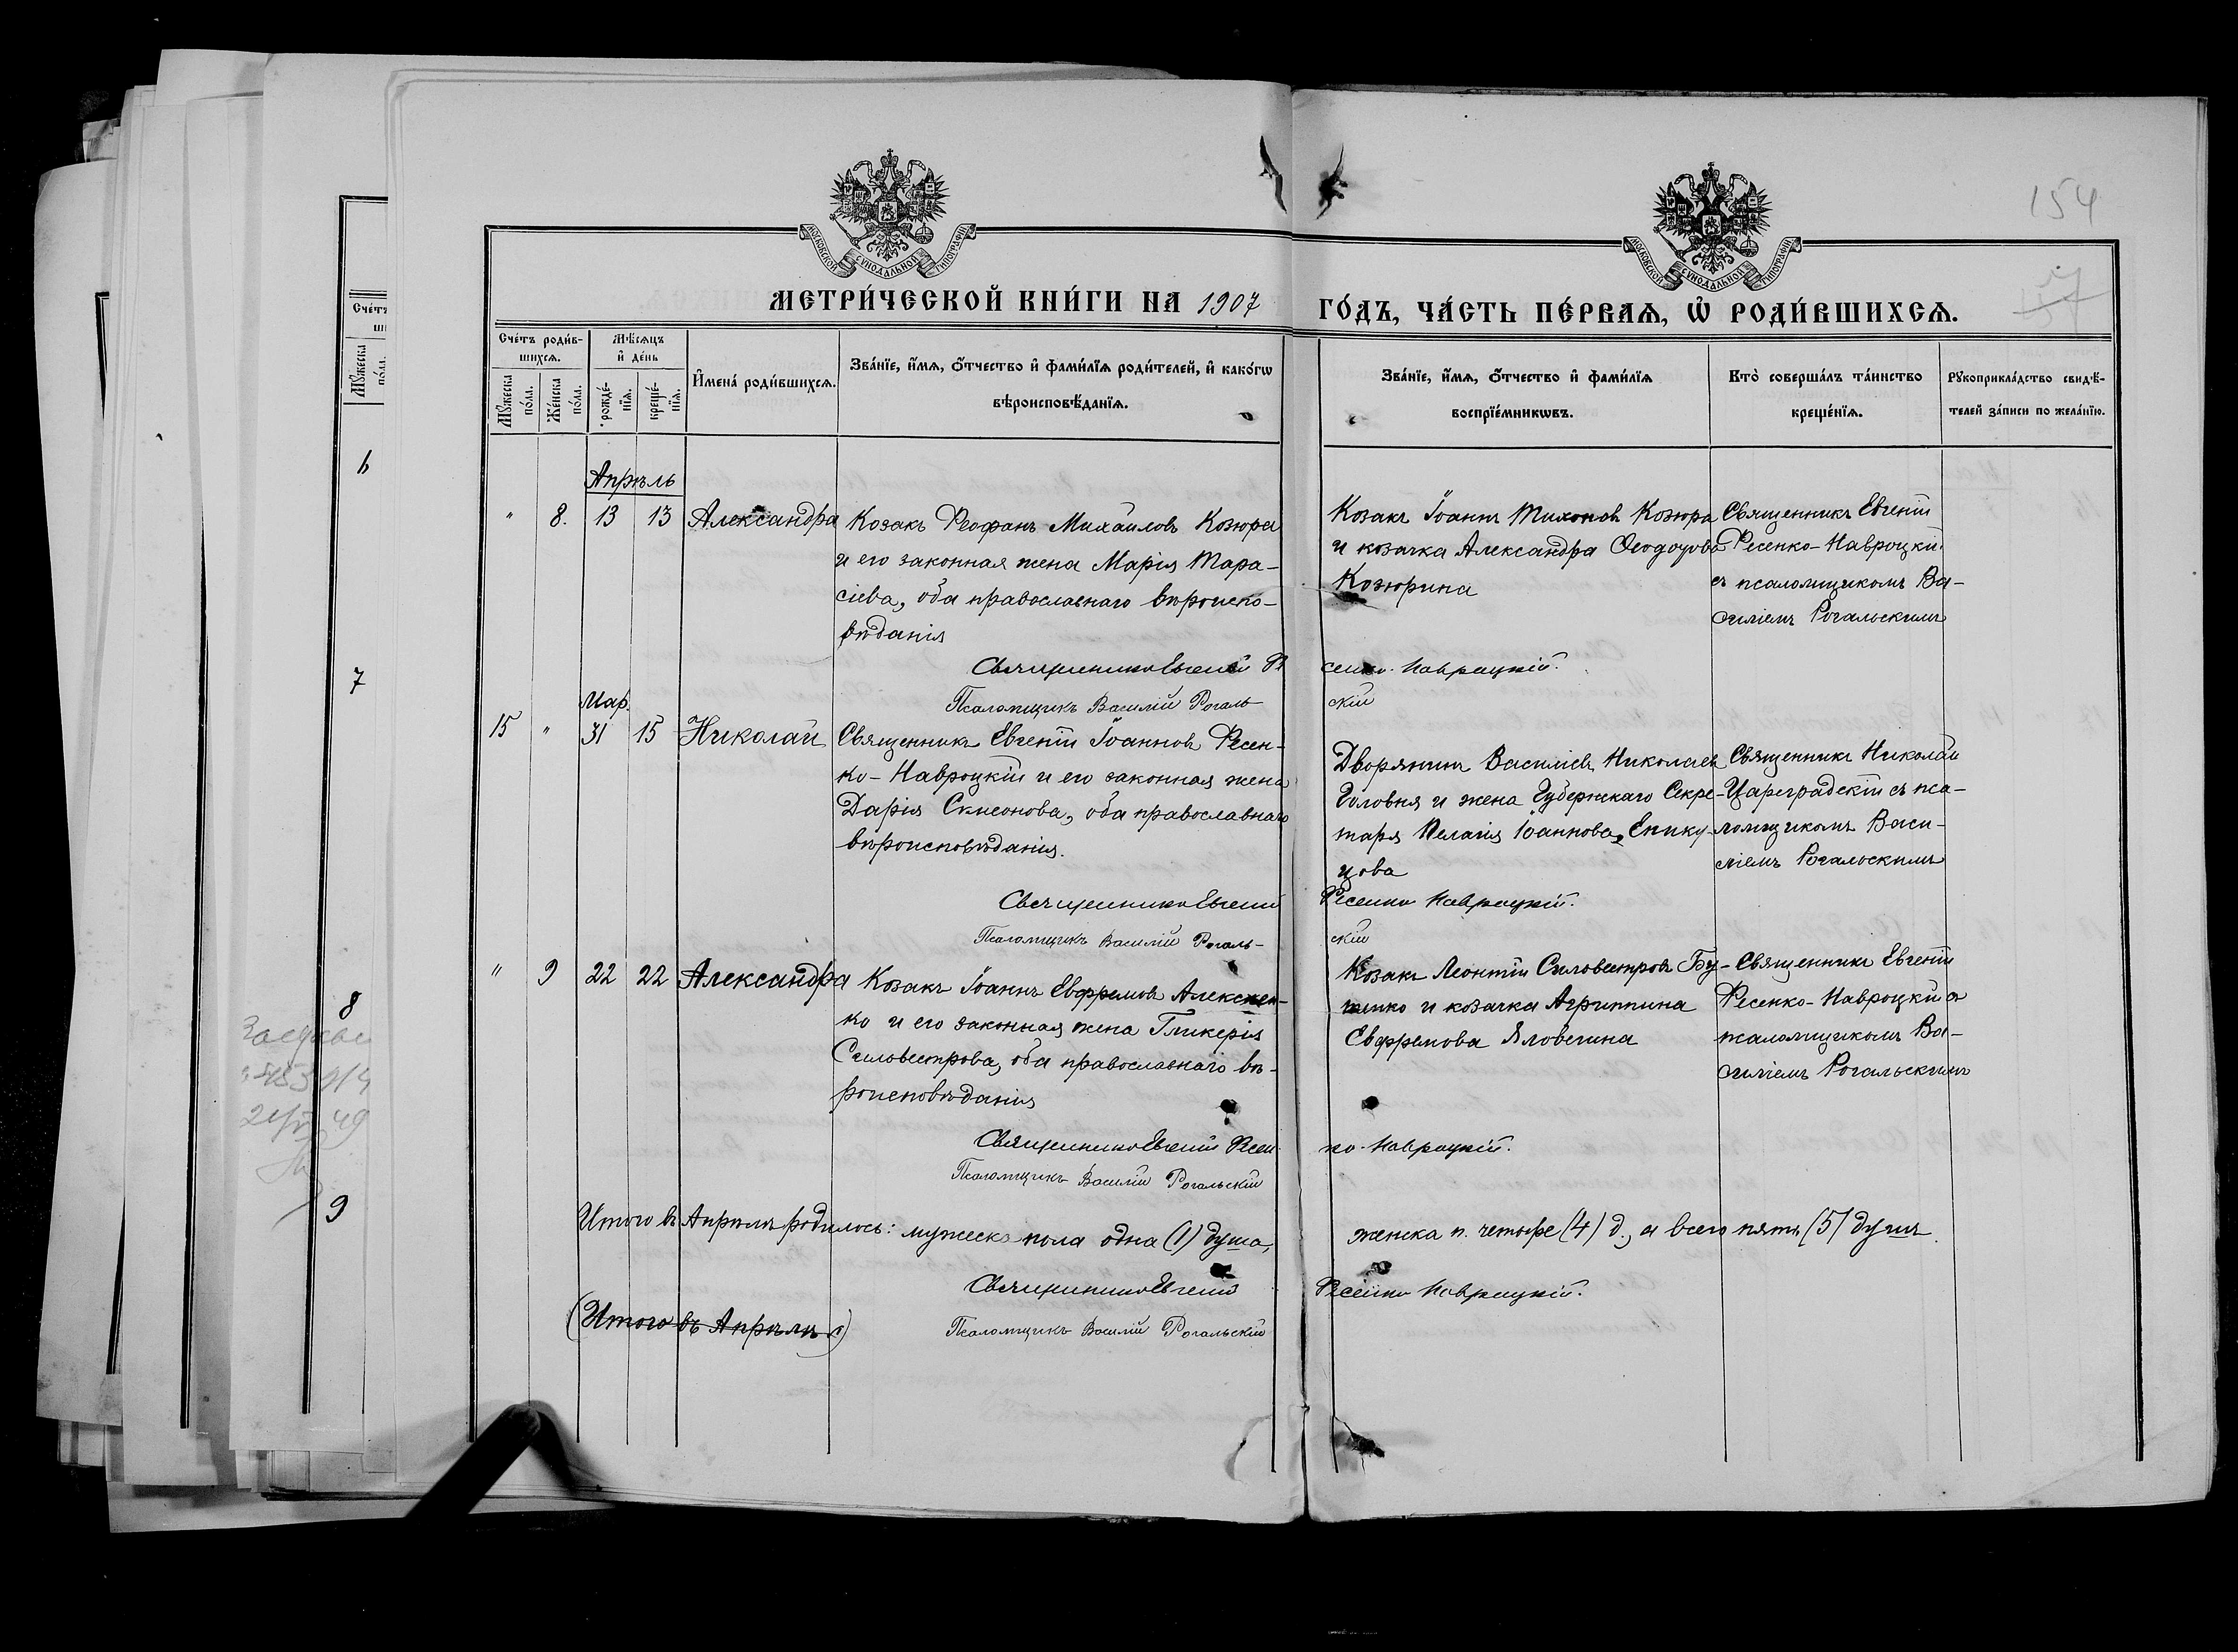 154
МОСКОВСКОЙ СѴНОДАЛЬНОЙ ТИПОГРАФІИ
МОСКОВСКОЙ СѴНОДАЛЬНОЙ ТИПОГРАФІИ
МЕТРИ́ЧЕСКОЙ КНИ́ГИ НА 1907
ГО́ДЪ, ЧА́СТЬ ПЕ́РВАѦ, Ѡ҆ РОДИ́ВШИХСѦ.
Сче́тъ роди́в-
шихсѧ.
Мꙋ́жеска по́ла.
Же́нска по́ла.
Мѣ́сѧцъ
и҆ де́нь
рожде́-
нїѧ.
креще́-
нїѧ.
И҆мена̀ роди́вшихсѧ.
Зва́нїе, и҆́мѧ, ѻ҆́тчество и҆ фами́лїѧ роди́телей, и҆ како́гѡ
вѣроисповѣ́данїѧ.
Зва́нїе, и҆́мѧ, ѻ҆́тчество и҆ фами́лїѧ
воспрїе́мникѡвъ.
Кто̀ соверша́лъ та́инство
креще́нїѧ.
Рꙋкоприкла́дство свидѣ́-
телей за́писи по жела́нїю.
Апрѣль
" 8. 13 13 Александра
Козакъ Ѳеофанъ Михаиловъ Козюра
и его законная жена Марія Тара-
сіева, оба православнаго вѣроиспо-
вѣданія
Козакъ Іоаннъ Тихоновъ Козюра
и козачка Александра Ѳеодорова
Козюрина
Священникъ Евгеній
Фесенко-Навроцкій
съ псаломщикомъ Ва-
силіемъ Рогальскимъ
Священникъ Евгеній Фе
сенко-Навроцкій.
Псаломщикъ Василій Рогаль-
скій
Мар.
15 " 31 15 Николай
Священникъ Евгеній Іоанновъ Фесен-
ко-Навроцкій и его законная жена
Дарія Симеонова, оба православнаго
вѣроисповѣданія.
Дворянинъ Василій Николаевъ
Головня и жена Губернскаго Секре-
таря Пелагія Іоаннова Епику-
цова
Священникъ Николай
Цареградскій съ пса-
ломщикомъ Васи-
ліемъ Рогальскимъ
Священникъ Евгеній
Фесенко Навроцкій.
Псаломщикъ Василій Рогаль-
скій
" 9 22 22 Александра
Козакъ Іоаннъ Евфремовъ Алексеен-
ко и его законная жена Гликерія
Сильвестрова, оба православнаго вѣ-
роисповѣданія
Козакъ Леонтій Сильвестровъ Бу-
тенко и козачка Агриппина
Евфремова Яловегина
Священникъ Евгеній
Фесенко-Навроцкій съ
псаломщикомъ Ва-
силіемъ Рогальскимъ
Священникъ Евгеній Фесен-
ко-Навроцкій.
Псаломщикъ Василій Рогальскій
Итого въ Апрѣлѣ родилось: мужеска пола одна (1) душа,
женска п. четыре (4) д., а всего пять (5) душъ.
Священникъ Евгеній
Фесенко Навроцкій.
(Итого въ Апрѣлѣ)
Псаломщикъ Василій Рогальскій
Сче́тъ
Мꙋ́жеска
по́ла.
6
7
8
9